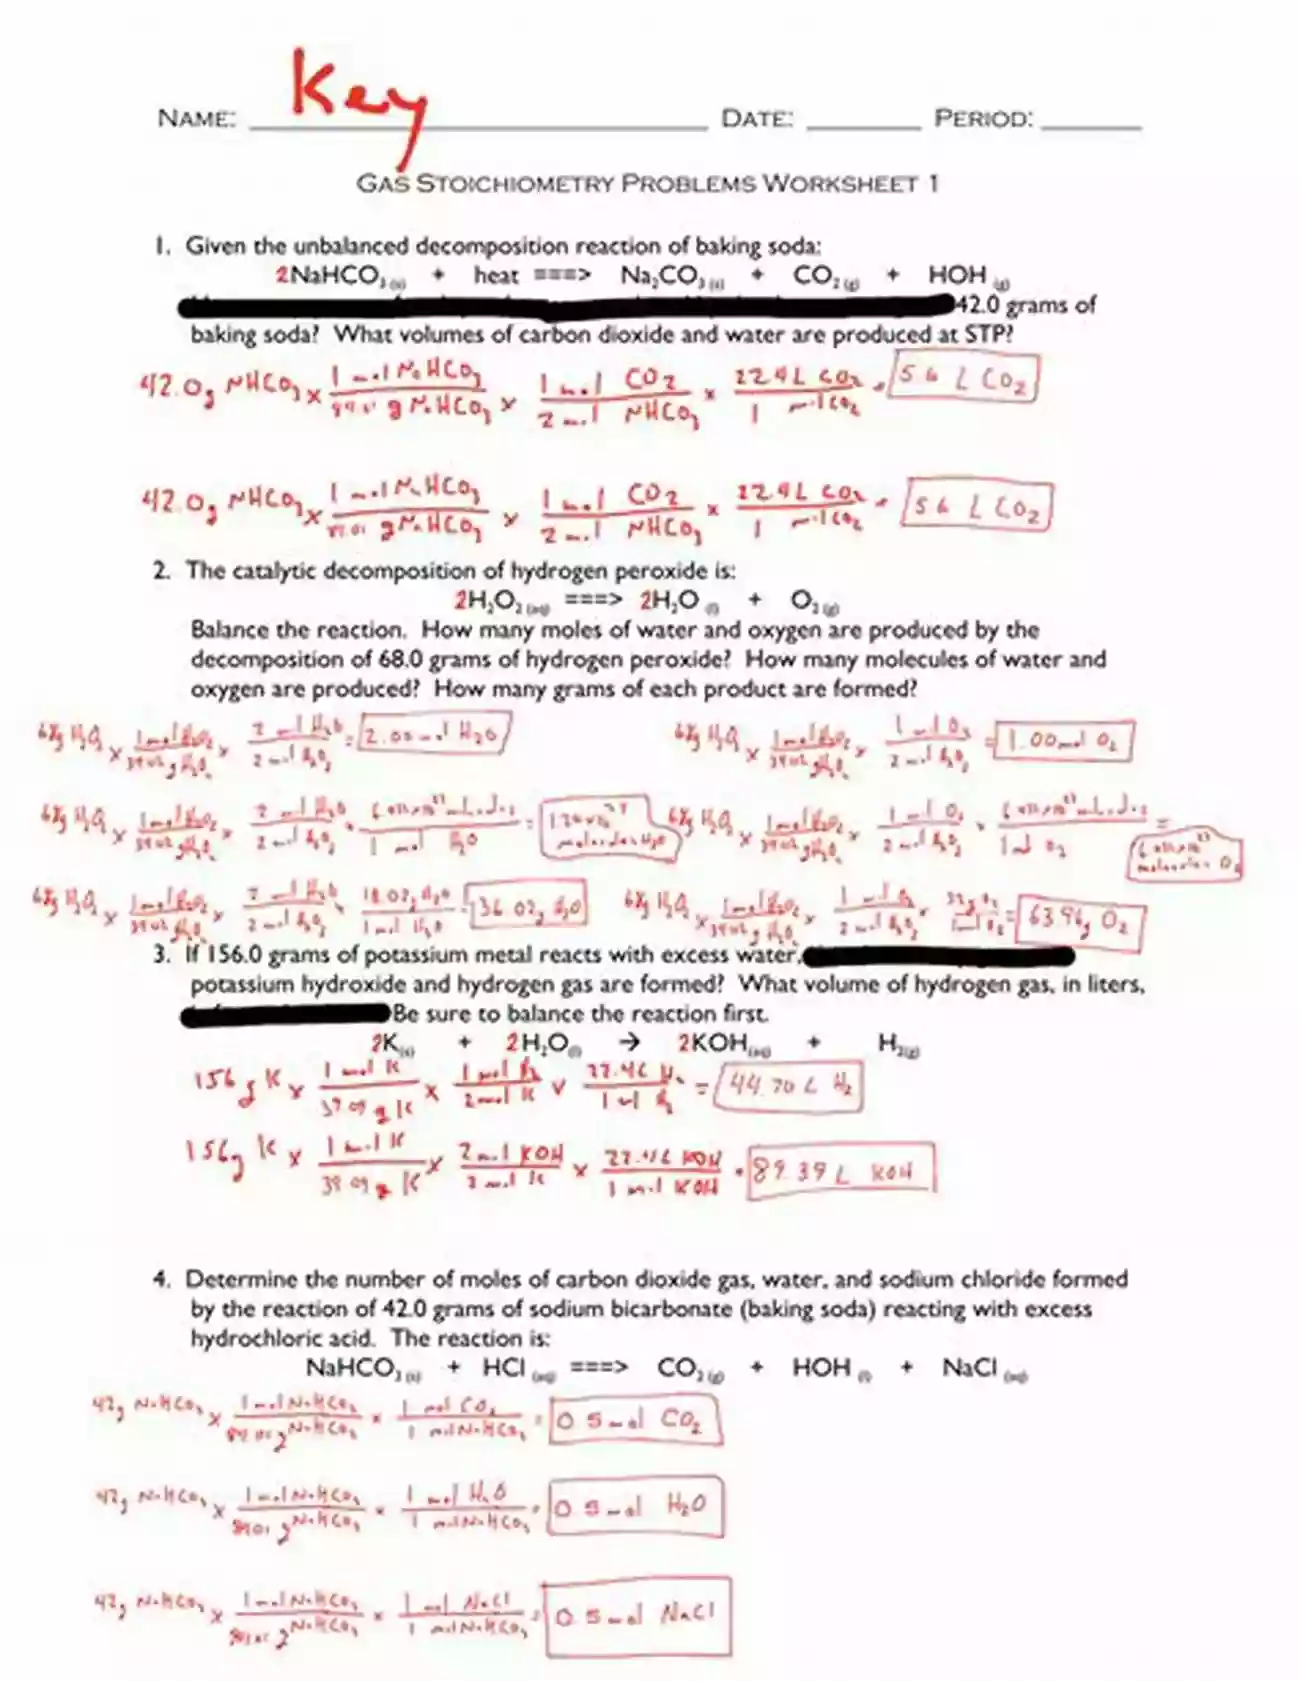 Key
NAME: DATE: PERIOD:
GAS STOICHIOMETRY PROBLEMS WORKSHEET 1
1. Given the unbalanced decomposition reaction of baking soda:
2NaHCO3 (s) + heat ===> Na2CO3 (s) + CO2 (g) + HOH (g)
42.0 grams of
baking soda? What volumes of carbon dioxide and water are produced at STP?
42.0g NHCO3 x 1 mol NaHCO3 / 84.01 g NaHCO3 x 1 mol CO2 / 2 mol NHCO3 x 22.4L CO2 / 1 mol CO2 = 5.6 L CO2
42.0g NHCO3 x 1 mol NaHCO3 / 84.01 g NaHCO3 x 1 mol CO2 / 2 mol NHCO3 x 22.4L CO2 / 1 mol CO2 = 5.6 L CO2
2. The catalytic decomposition of hydrogen peroxide is:
2H2O2 (aq) ===> 2H2O (l) + O2 (g)
Balance the reaction. How many moles of water and oxygen are produced by the
decomposition of 68.0 grams of hydrogen peroxide? How many molecules of water and
oxygen are produced? How many grams of each product are formed?
68g H2O2 x 1 mol H2O2 / 34.02 g H2O2 x 2 mol H2O / 2 mol H2O2 = 2.00 mol H2O
68g H2O2 x 1 mol H2O2 / 34.02 g H2O2 x 1 mol O2 / 2 mol H2O2 = 1.00 mol O2
68g H2O2 x 1 mol H2O2 / 34.02 g H2O2 x 2 mol H2O / 2 mol H2O2 x molecules / 1 mol H2O = molecules H2O
68g H2O2 x 1 mol H2O2 / 34.02 g H2O2 x 1 mol O2 / 2 mol H2O2 x molecules / 1 mol O2 = molecules O2
68g H2O2 x 1 mol H2O2 / 34.02 g H2O2 x 2 mol H2O / 2 mol H2O2 x 18.02g H2O / 1 mol H2O = 36.02g H2O
68g H2O2 x 1 mol H2O2 / 34.02 g H2O2 x 1 mol O2 / 2 mol H2O2 x 32g O2 / 1 mol O2 = 63.96g O2
3. If 156.0 grams of potassium metal reacts with excess water,
potassium hydroxide and hydrogen gas are formed? What volume of hydrogen gas, in liters,
Be sure to balance the reaction first.
2K(s) + 2H2O(l) → 2KOH(aq) + H2(g)
156g K x 1 mol K / 39.09 g K x 1 mol H2 / 2 mol K x 22.4L H2 / 1 mol H2 = 44.70 L H2
156g K x 1 mol K / 39.09 g K x 2 mol KOH / 2 mol K x 22.4L KOH / 1 mol KOH = 89.39 L KOH
4. Determine the number of moles of carbon dioxide gas, water, and sodium chloride formed
by the reaction of 42.0 grams of sodium bicarbonate (baking soda) reacting with excess
hydrochloric acid. The reaction is:
NaHCO3 (s) + HCl (aq) ===> CO2 (g) + HOH (l) + NaCl (aq)
42g NaHCO3 x 1 mol NaHCO3 / 84.01 g NaHCO3 x 1 mol CO2 / 1 mol NaHCO3 = 0.5 mol CO2
42g NaHCO3 x 1 mol NaHCO3 / 84.01 g NaHCO3 x 1 mol H2O / 1 mol NaHCO3 = 0.5 mol H2O
42g NaHCO3 x 1 mol NaHCO3 / 84.01 g NaHCO3 x 1 mol NaCl / 1 mol NaHCO3 = 0.5 mol NaCl